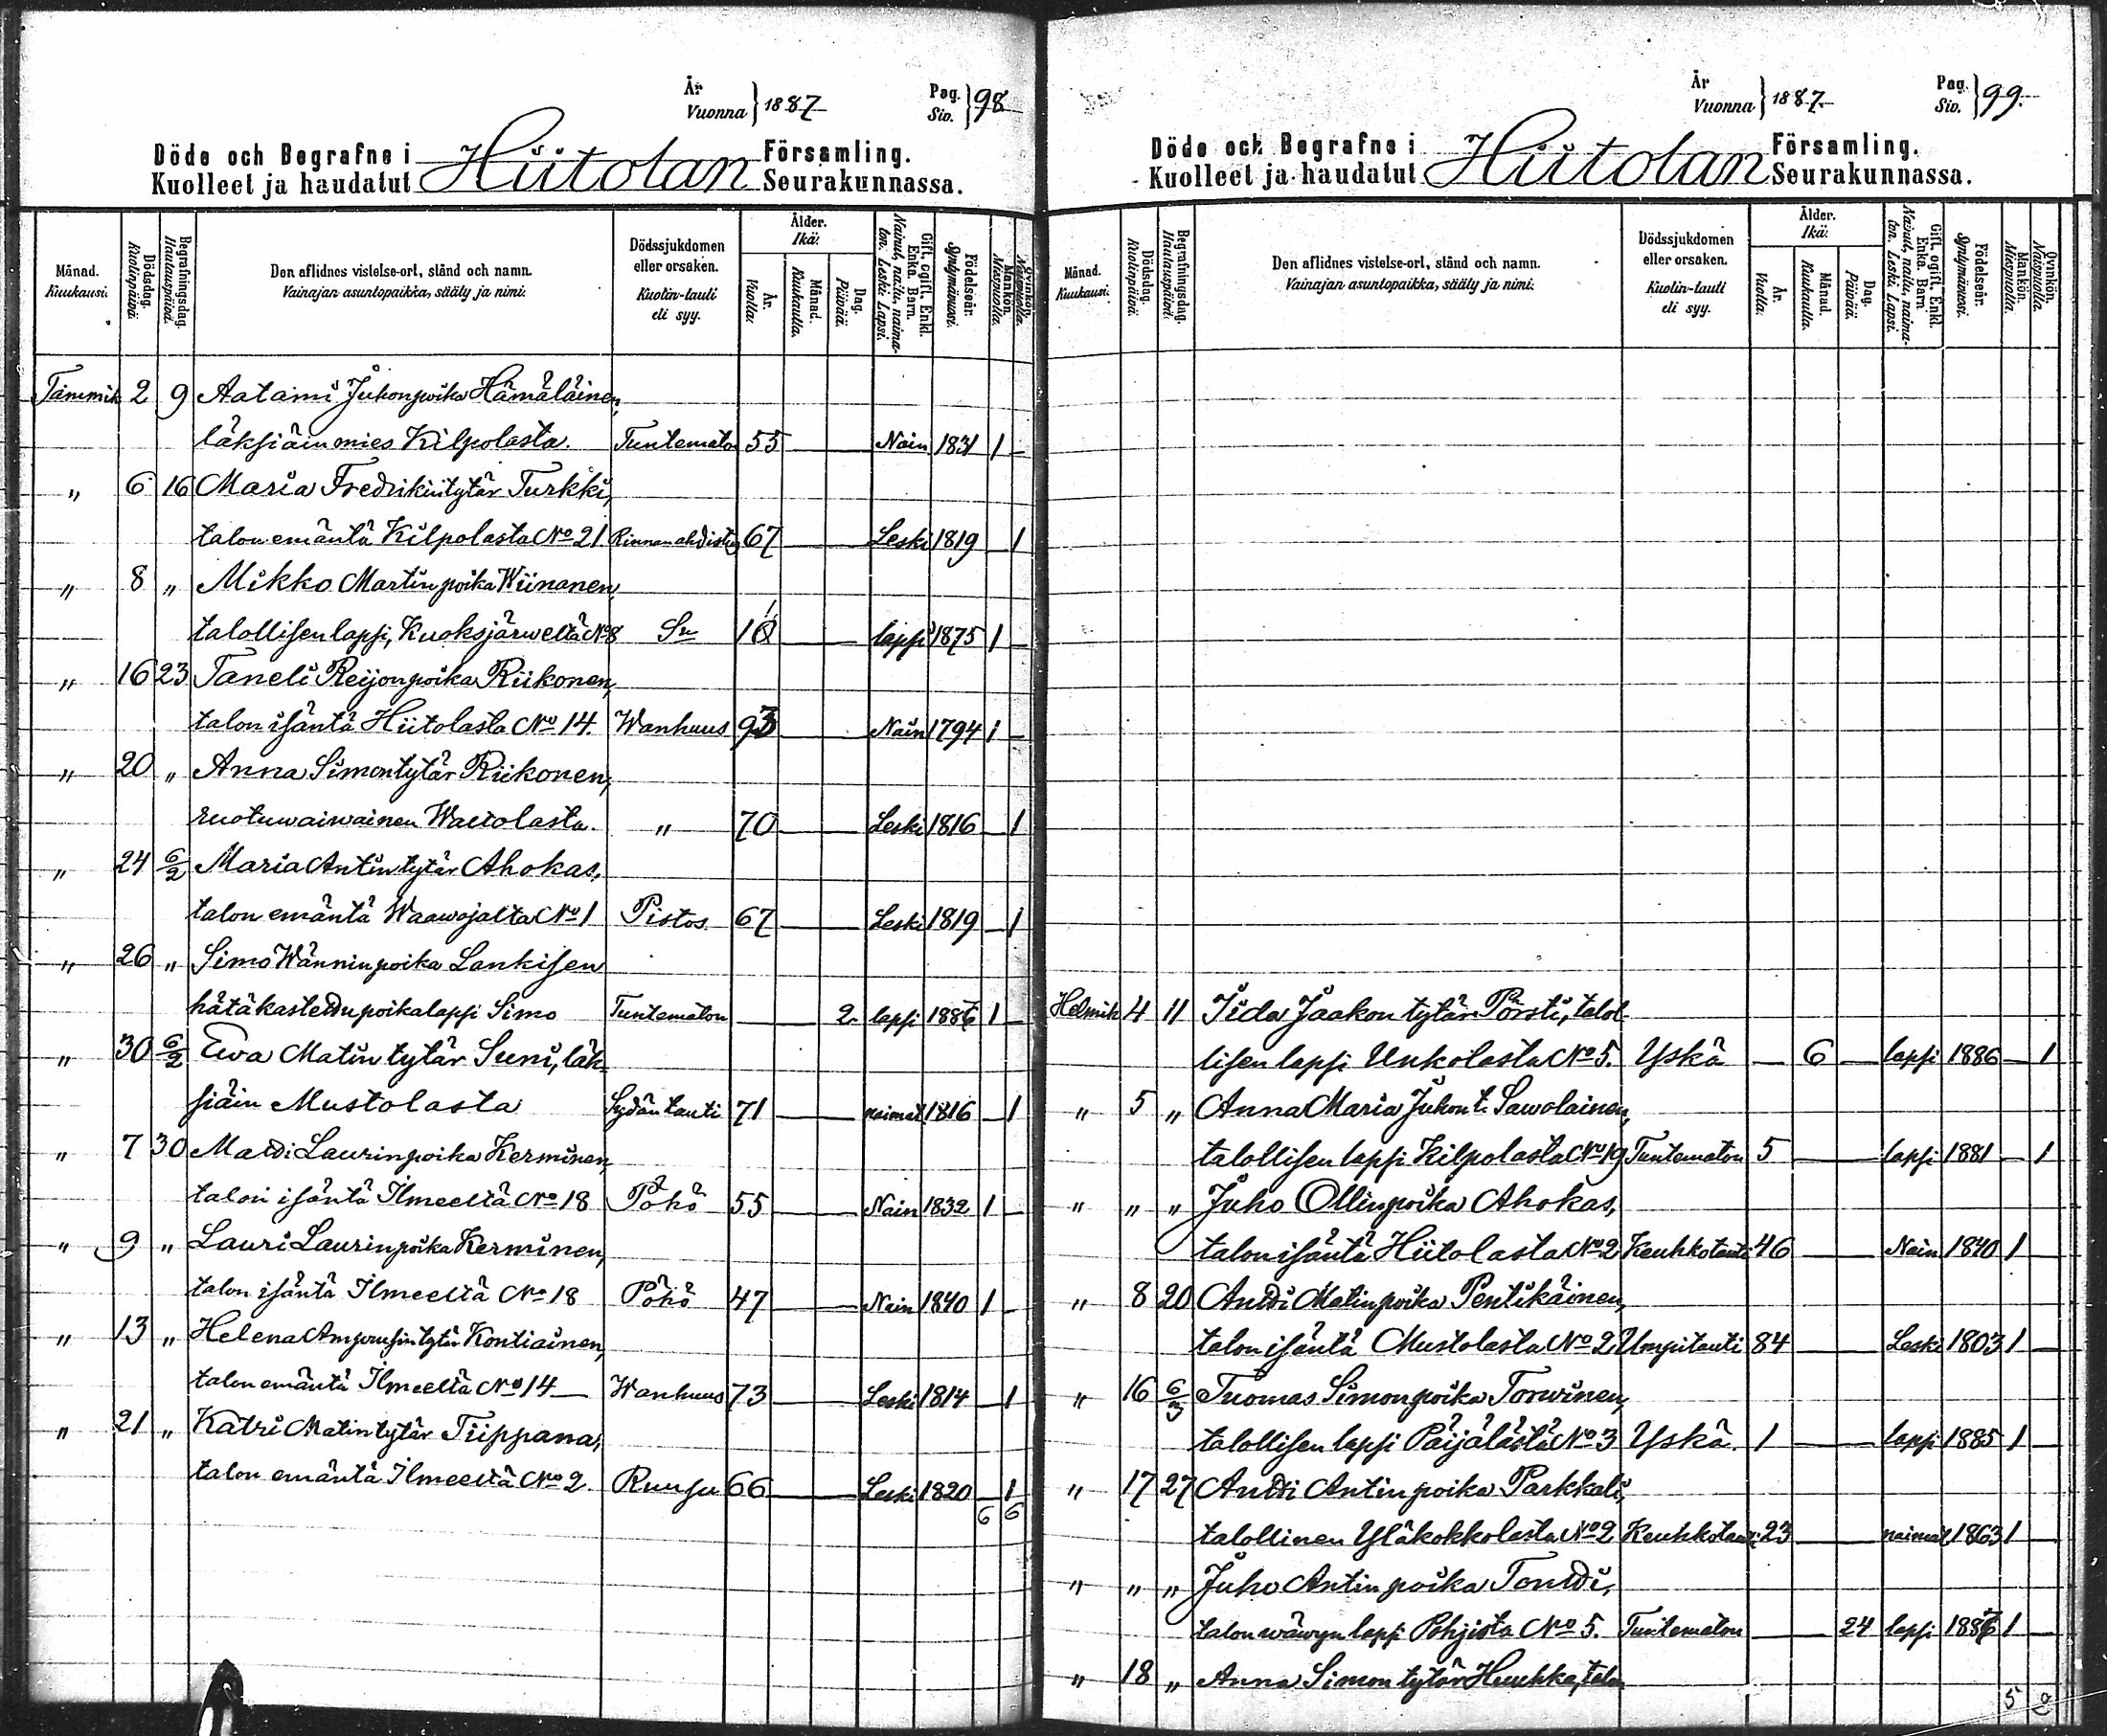 År
Vuonna } 1887
Pag.
Siv. } 98
Döde och Begrafne i Hiitolan Församling.
Kuolleet ja haudatut Seurakunnassa.
Månad. Kuukausi.
Dödsdag. Kuolinpäivä.
Begrafningsdag. Hautauspäivä.
Den aflidnes vistelse-ort, stånd och namn.
Vainajan asuntopaikka, sääty ja nimi.
Dödssjukdomen eller orsaken.
Kuolin-tauti eli syy.
Ålder. Ikä.
År. Vuotta.
Månad. Kuukautta.
Dag. Päivää.
Gift, ogift. Enkl. Enka. Barn.
Nainut, naitu, naimaton. Leski. Lapsi.
Födelseår. Syntymävuosi.
Mankön. Miespuolia.
Qvinkön. Naispuolia.
Tammik 2 9 Aatami Juhonpoika Hämäläinen,
läksiäin mies Kilpolasta. Tuntematon 55 Nain 1831 1 —
" 6 16 Maria Fredrikintytär Turkki,
talon emäntä Kilpolasta No 21 Rinnanahdistus 67 Leski 1819 — 1
" 8 " Mikko Martinpoika Wiinanen,
talollisen lapsi, Kuoksjärweltä No 8 Sn 11 lapsi 1875 1 —
" 16 23 Taneli Reijonpoika Riikonen,
talon isäntä Hiitolasta No 14. Wanhuus 93 Nain 1794 1 —
" 20 " Anna Simontytär Riikonen,
ruotuwaiwainen Waetolasta. " 70 Leski 1816 — 1
" 24 6/2 Maria Antintytär Ahokas,
talon emäntä Waawojalta No 1 Pistos 67 Leski 1819 — 1
" 26 " Simo Wänninpoika Lankisen
hätäkastettu poikalapsi Simo Tuntematon 2 lapsi 1886 1 —
" 30 6/2 Ewa Matintytär Suni, läk-
siäin Mustolasta Sydäntauti 71 naimat 1816 — 1
" 7 30 Matti Laurinpoika Kerminen,
talon isäntä Ilmeeltä No 18 Pöhö 55 Nain 1832 1 —
" 9 " Lauri Laurinpoika Kerminen,
talon isäntä Ilmeeltä No 18 Pöhö 47 Nain 1840 1 —
" 13 " Helena Ampusintytär Kontiainen,
talon emäntä Ilmeeltä No 14 — Wanhuus 73 Leski 1814 — 1
" 21 " Katri Matintytär Tiippana,
talon emäntä Ilmeeltä No 2. Ruusu 66 Leski 1820 — 1
6 6
År
Vuonna } 1887.
Pag.
Siv. } 99.
Döde och Begrafne i Hiitolan Församling.
Kuolleet ja haudatut Seurakunnassa.
Månad. Kuukausi.
Dödsdag. Kuolinpäivä.
Begrafningsdag. Hautauspäivä.
Den aflidnes vistelse-ort, stånd och namn.
Vainajan asuntopaikka, sääty ja nimi.
Dödssjukdomen eller orsaken.
Kuolin-tauti eli syy.
Ålder. Ikä.
År. Vuotta.
Månad. Kuukautta.
Dag. Päivää.
Gift, ogift. Enkl. Enka. Barn.
Nainut, naitu, naimaton. Leski. Lapsi.
Födelseår. Syntymävuosi.
Mankön. Miespuolia.
Qvinkön. Naispuolia.
Helmik 4 11 Iida Jaakontytär Pörsti, talol-
lisen lapsi Unkolasta No 5. Yskä — 6 — lapsi 1886 — 1
" 5 " Anna Maria Juhont. Sawolainen,
talollisen lapsi Kilpolasta No 19 Tuntematon 5 lapsi 1881 — 1
" " " Juho Ollinpoika Ahokas,
talon isäntä Hiitolasta No 2 Keuhkotauti 46 Nain 1840 1 —
" 8 20 Antti Matinpoika Pentikäinen,
talon isäntä Mustolasta No 2 Umpitauti 84 Leski 1803 1 —
" 16 6/3 Tuomas Simonpoika Torwinen,
talollisen lapsi Päijälästä No 3 Yskä. 1 lapsi 1885 1 —
" 17 27 Antti Antinpoika Parkkali,
talollinen Yläkokkolasta No 2 Keuhkotauti 23 naimat 1863 1 —
" " " Juho Antinpoika Tontti,
talon wäwyn lapsi Pohjista No 5. Tuntematon 24 lapsi 1886 1 —
" 18 " Anna Simontytär Huuhka, talon
5 2